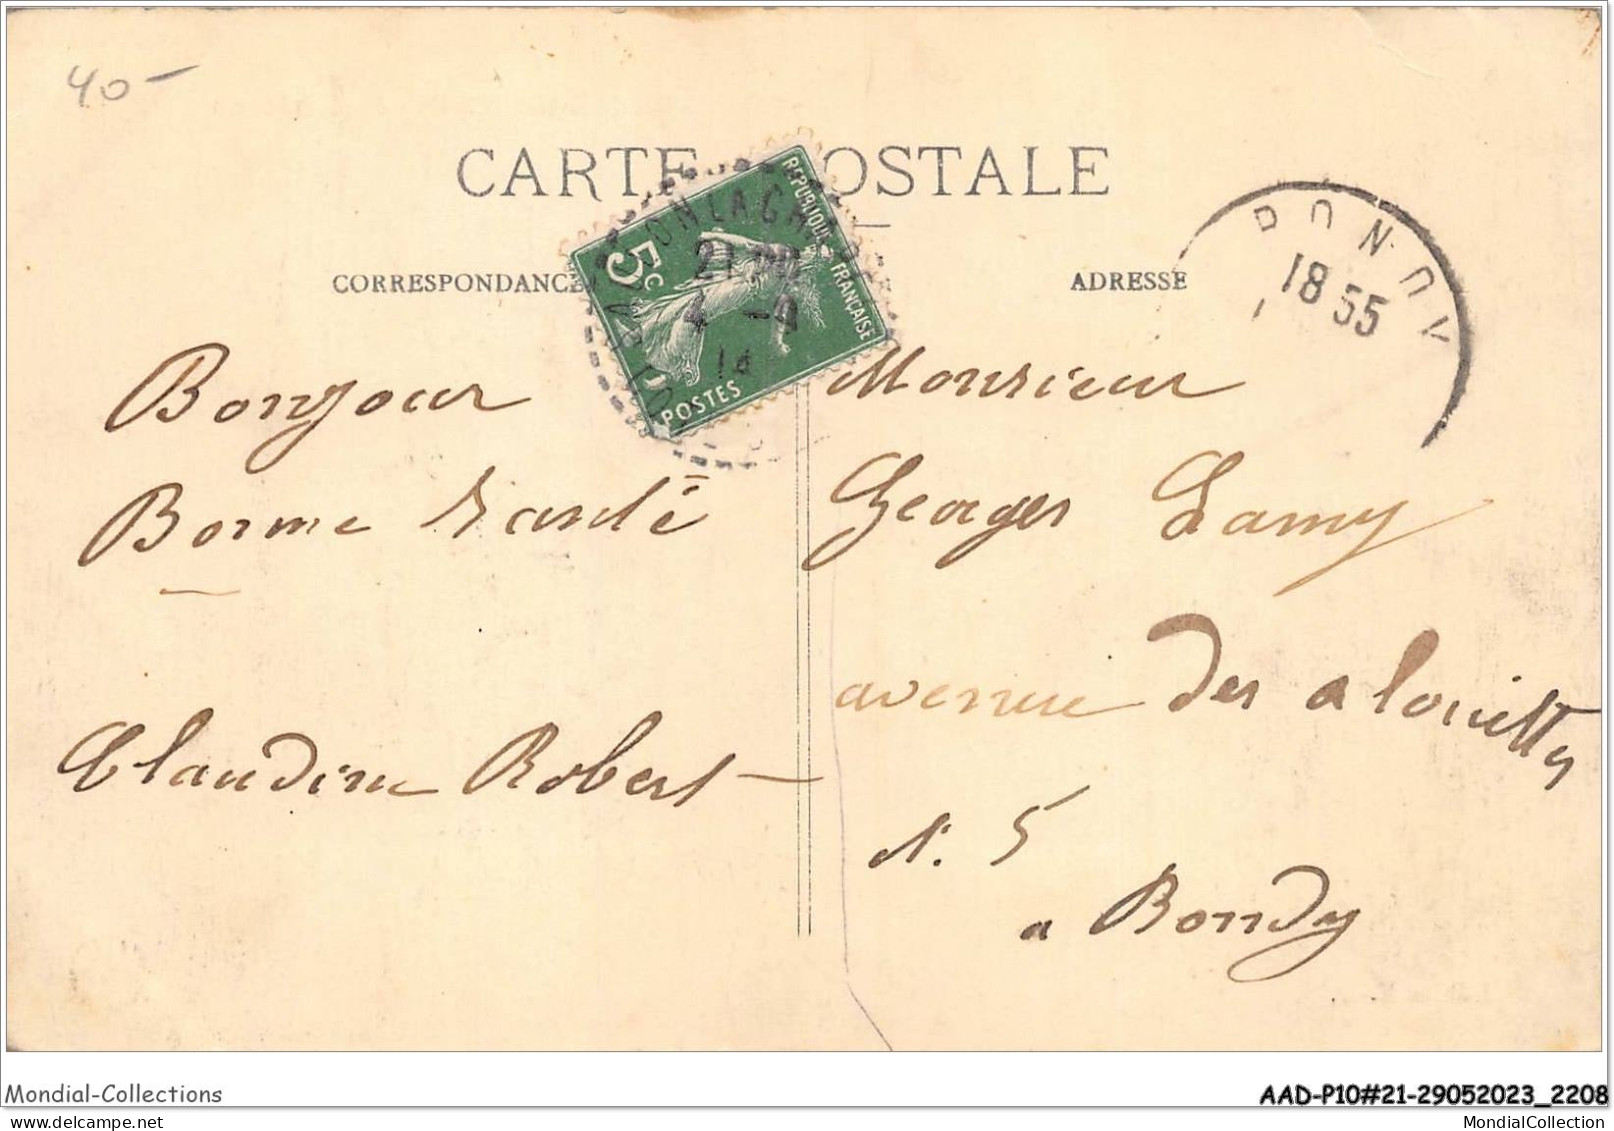 40-
CARTE POSTALE
CORRESPONDANCE
ADRESSE
RÉPUBLIQUE FRANÇAISE
5c
POSTES
4 -9
14
BONDY
18 55
Bonjour
Bonne Santé
Claudine Robert
Monsieur
Georges Lamy
avenue des alouettes
N. 5
a Bondy
Mondial-Collections
AAD-P10#21-29052023_2208
MondialCollection